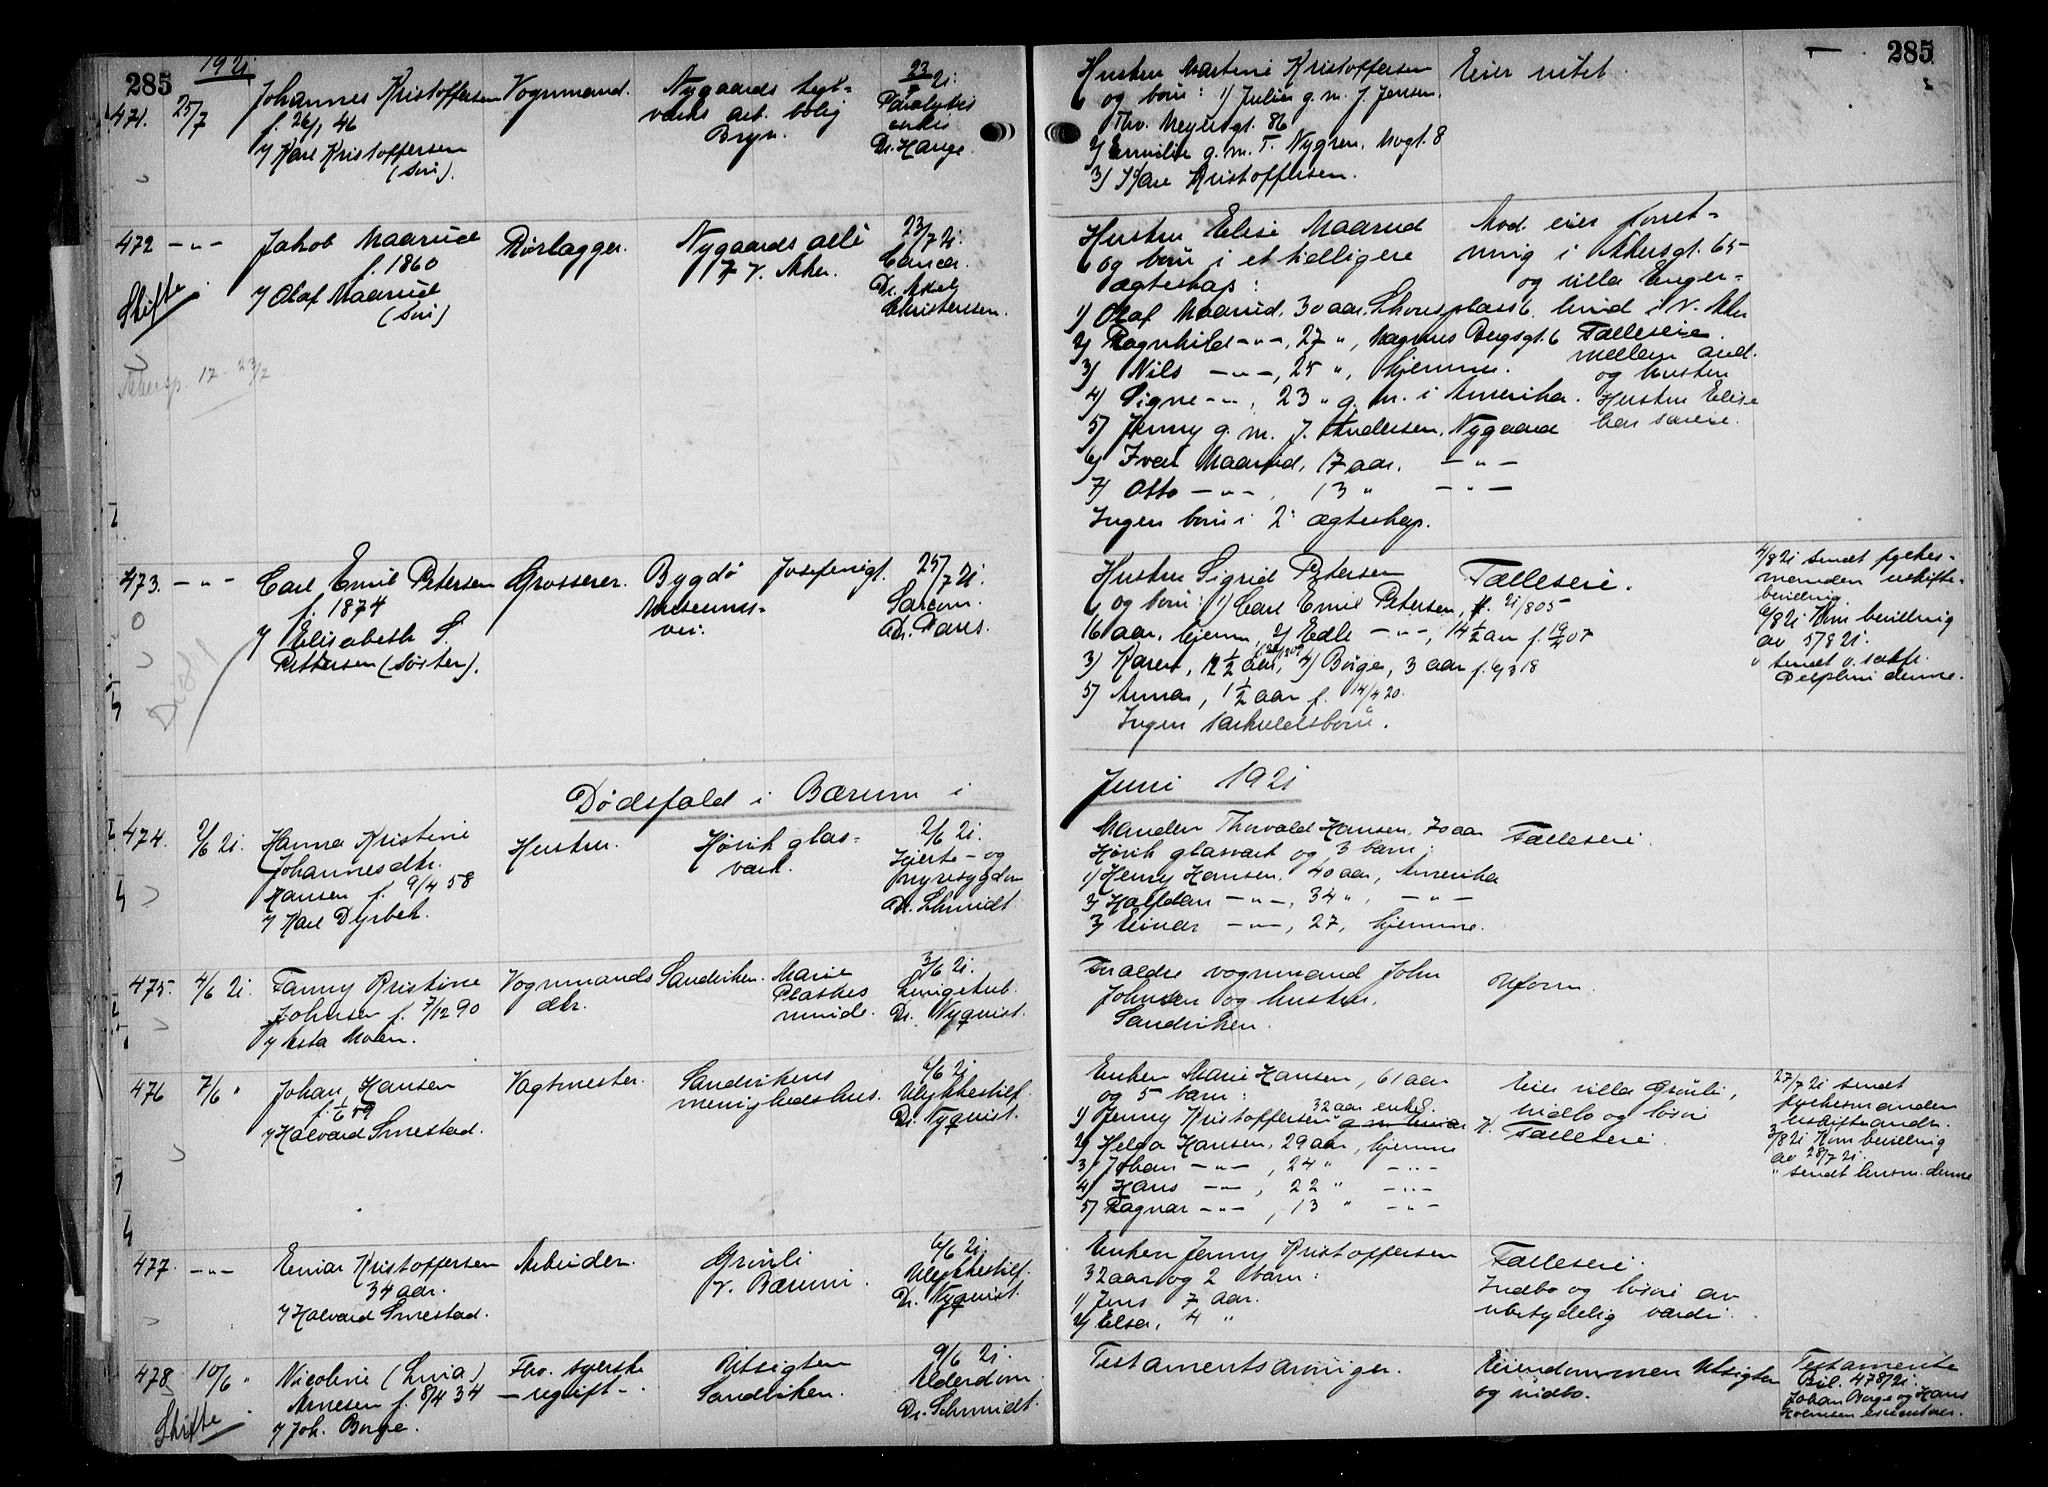 1921
285
471. 25/7 Johannes Kristoffersen Vognmand. Nygaards
f. 26/1 46
v/ Karl Kristoffersen
(søn).
arb. bolig
Bryn.
23/7 21
Paralysis
Dr. Hauge.
Hustru Martine Kristoffersen
og børn: 1) Julie g. m. J. Jensen.
Thv. Meyersgt. 86
2) Emilie g. m. T. Nygren. Mogt. 8
3) Kare Kristoffersen.
Eier intet.
285
472 -"- Jakob Maarud
f. 1860
v/ Olaf Maarud
(søn)
Rørlægger.
Nygaards allé
17 v. Aker.
23/7 21.
Cancer.
Dr. Aksel
Christensen.
Skifte
Akersp. 17 - 23/7
Hustru Elise Maarud
og børn i et tidligere
ægteskap:
1) Olaf Maarud, 30 aar, Schousplass 6.
2) Ragnhild -"-, 27 ", Magnus Bergsgt. 6
3) Nils -"-, 25 ", hjemme.
4) Signe -"-, 23 " g. m. i Amerika.
5) Jenny g. m. J. Andersen, Nygaard
6) Ivar Maarud, 17 aar. -"-
7) Otto -"-, 13 " -"-
Ingen børn i 2' ægteskap.
Avd. eier forret-
ning i Akersgt. 65
og villa Enger-
lund i V. Aker
Fælleseie
mellem avd.
og hustru
Hustru Elise
har særeie.
473. -"- Carl Emil Petersen
f. 1874
v/ Elisabeth S.
Pettersen (søster).
Grosserer.
Bygdø
Museums-
vei.
Josefinegt.
25/7 21.
Sarcom.
Dr. Paus.
Hustru Sigrid Petersen
og børn: 1) Carl Emil Petersen, f. 21/8 05
16 aar, hjemme, 2) Edle -"-, 14 1/2 aar f. 19/2 07
3) Karen, 12 1/2 aar, 4) Børge, 3 aar f. 6/3 18
5) Anna, 1 1/2 aar f. 14/4 20.
Ingen særkuldsbørn.
Fælleseie.
4/8 21 sendt fylkes-
manden uskifte-
bevilling
6/8 21 Kom bevilling
av 5/8 21.
" sendt o.sakf.
Delphin denne.
Dødsfald i Bærum i
Juni 1921
474. 2/6 21. Hanna Kristine
Johannesdtr.
Hansen f. 9/4 58
v/ Karl Dyrbek.
Hustru.
Høvik glas-
værk.
2/6 21.
Hjerte- og
nyresygdom
Dr. Schmidt
Manden Thorvald Hansen, 70 aar
Høvik glasværk og 3 barn:
1) Henry Hansen, 40 aar, Amerika
2) Halfdan -"-, 34 ", -"-
3) Einar -"-, 27, hjemme.
Fælleseie.
475. 4/6 21. Fanny Kristine
Johnsen f. 7/12 90
v/ Asta Moen.
Vognmands
dtr.
Sandviken.
Marie
Plathes
minde.
3/6 21.
Lungetub.
Dr. Nyquist.
Forældre vognmand John
Johnsen og hustru,
Sandviken.
Uform.
476 7/6 " Johan Hansen
f. 1/6 59
v/ Halvard Smestad.
Vagtmester.
Sandvikens
menighedshus.
6/6 21
Ulykkestilf.
Dr. Nyquist.
Enken Marie Hansen, 61 aar
og 5 barn:
1) Jenny Kristoffersen 32 aar enke.
2) Helga Hansen, 29 aar, hjemme
3) Johan -"-, 24 " -"-
4) Hans -"-, 22 " -"-
5) Ragnar -"-, 13 " -"-
Eier villa Grønli,
indbo og løsøre
Fælleseie.
27/7 21 sendt
fylkesmanden
uskifteandr.
3/8 21 Kom bevilling
av 28/7 21.
" sendt lensm. denne
477. -"- Einar Kristoffersen
34 aar.
v/ Halvard Smestad.
Arbeider.
Grønli
v. Bærum.
6/6 21.
Ulykkestilf.
Dr. Nyquist.
Enken Jenny Kristoffersen
32 aar og 2 barn:
1) Jens 7 aar.
2) Elsa, 4 "
Fælleseie.
Indbo og løsøre av
ubetydelig værdi.
478 10/6 " Nicoline (Lina)
Arnesen f. 8/4 34
v/ Joh. Borge.
Skifte
Fhv. syerske
- ugift -
Utsigten
Sandviken.
9/6 21.
Alderdom.
Dr. Schmidt.
Testamentsarvinger.
Eiendommen Utsigten
og indbo.
Testamente
Bil. 478/21.
Johan Borge og Hans
Holmsen executorer.